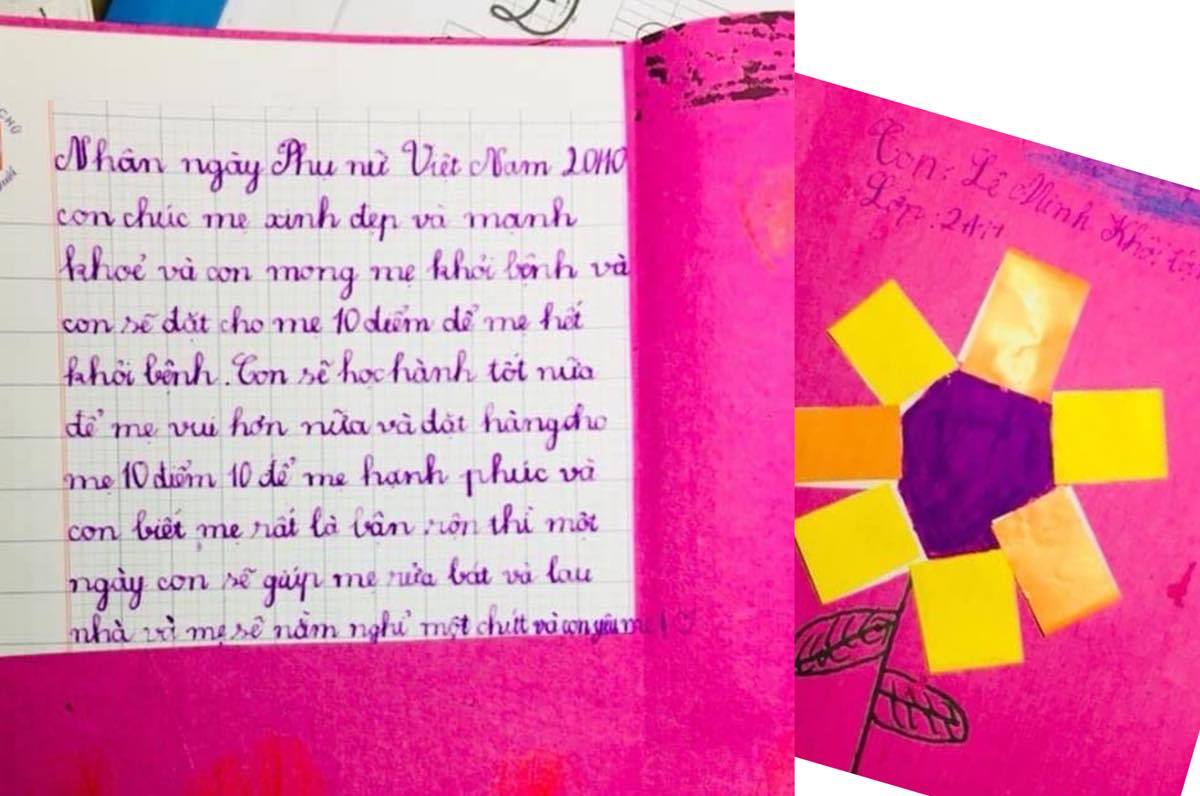 Nhân ngày Phụ nữ Việt Nam 20/10
con chúc mẹ xinh đẹp và mạnh
khoẻ và con mong mẹ khỏi bệnh và
con sẽ đặt cho mẹ 10 điểm để mẹ hết
khỏi bệnh. Con sẽ học hành tốt nữa
để mẹ vui hơn nữa và đặt hàng cho
mẹ 10 điểm 10 để mẹ hạnh phúc và
con biết mẹ rất là bận rộn thì một
ngày con sẽ giúp mẹ rửa bát và lau
nhà và mẹ sẽ nằm nghỉ một chút và con yêu mẹ
Con: Lê Minh Khôi
Lớp: 2A11